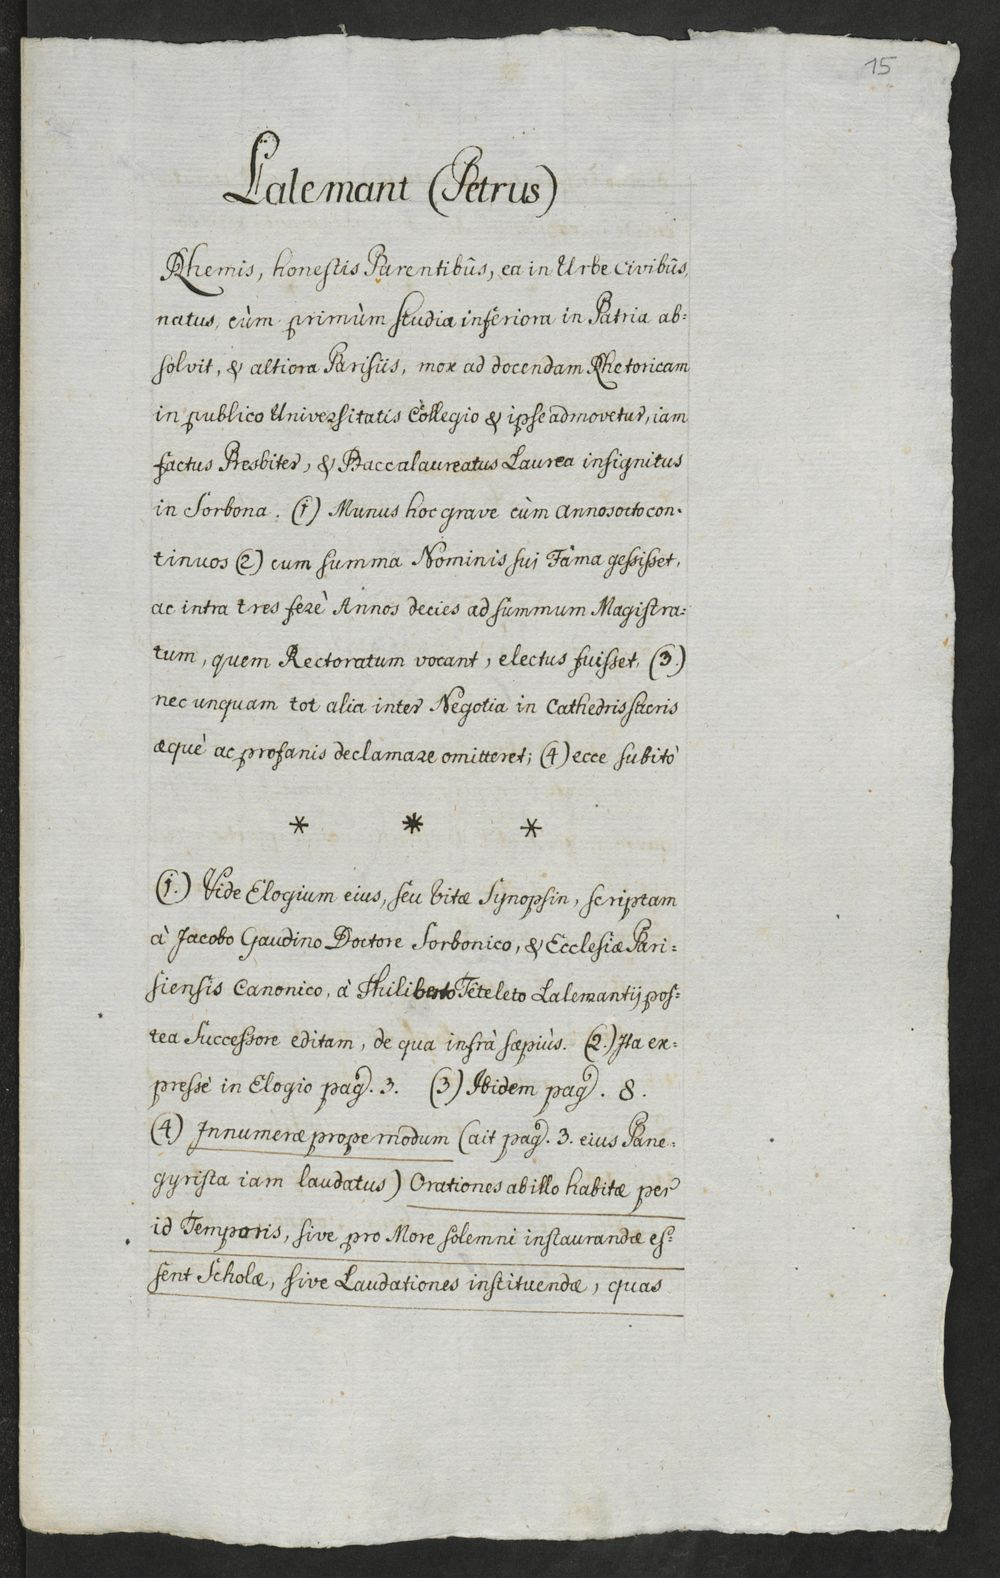 15
Lalemant (Petrus)
Rhemis, honestis Parentibûs, ea in Urbe Civibûs,
natus, cùm primùm studia inferiora in Patria ab=
solvit, & altiora Parisiis, mox ad docendam Rhetoricam
in publico Universitatis Collegio & ipse admovetur, iam
factus Presbiter, & Baccalaureatus Laurea insignitus
in Sorbona. (1) Munus hoc grave cùm Annos octo con=
tinuos (2) cum summa Nominis sui Fama gessisset,
ac intra tres ferè Annos decies ad summum Magistra=
tum, quem Rectoratum vocant, electus fuisset, (3.)
nec unquam tot alia inter Negotia in Cathedris sacris
æquè ac profanis declamare omitteret; (4) ecce subitò
* * *
(1.) Vide Elogium eius, seu Vitæ Synopsin, scriptam
à Jacobo Gaudino Doctore Sorbonico, & Ecclesiæ Pari=
siensis Canonico, à Philiberto Teteleto Lalemantij pos=
tea Successore editam, de qua infrà sæpiùs. (2.) Ita ex=
pressè in Elogio pag. 3. (3) Ibidem pag. 8.
(4) Innumeræ propemodum (ait pag. 3. eius Pane=
gyrista iam laudatus) Orationes ab illo habitæ per
id Temporis, sive pro More solemni instaurandæ es=
sent Scholæ, sive Laudationes instituendæ, quas